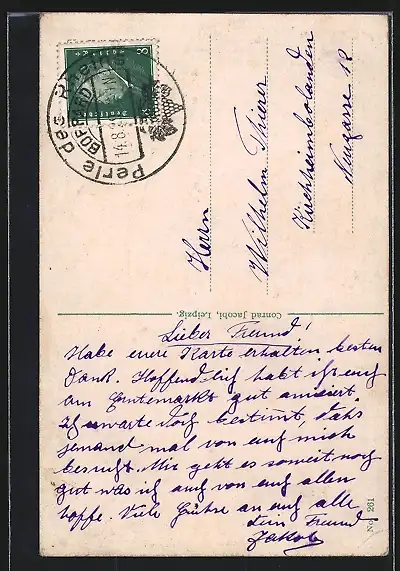 Perle des Rheins
BOPPARD
14.8.
Deutsches Reich
8
Herrn
Wilhelm Thierer
Kirchheimbolanden
Neugasse 18
Conrad Jacobi, Leipzig.
Lieber Freund!
Habe eure Karte erhalten besten
Dank. Hoffendlich habt ihr euch
am Erntemarkt gut amisiert.
Ich erwarte doch bestimt, dahs
jemand mal von euch mich
besucht. Mir geht es soweit noch
gut was ich auch von euch allen
hoffe. Viele Grühse an euch alle
Dein Freund
Jakob
No. 261